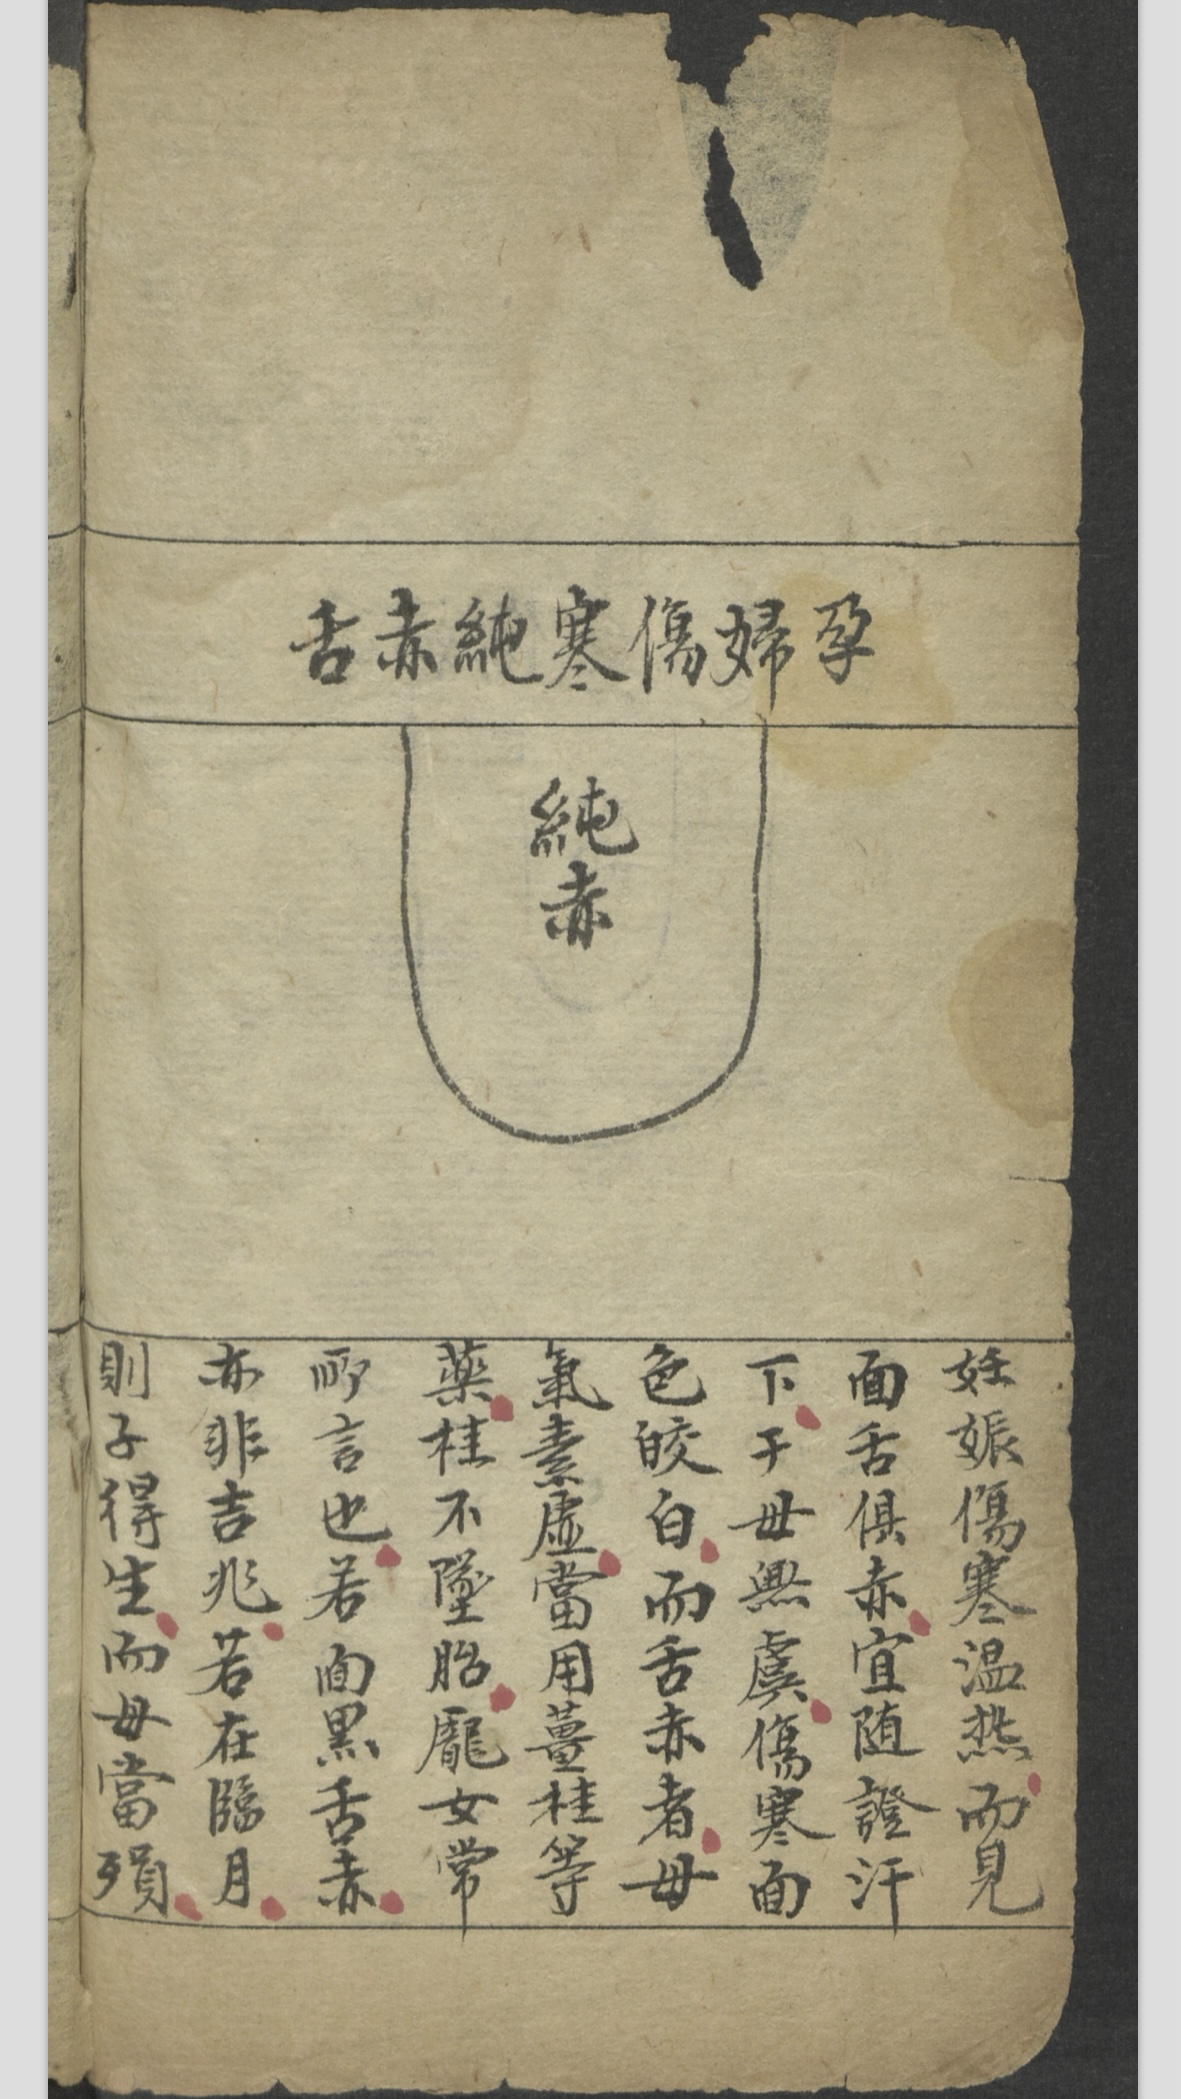 孕婦傷寒純赤舌
純赤
妊娠傷寒温热而見
面舌俱赤宜随證汗
下子母無虞傷寒面
色皎白而舌赤者母
氣素虛當用薑桂等
藥桂不墜胎龐女常
所言也若面黒舌赤
亦非吉兆若在臨月
則子得生而母當殞